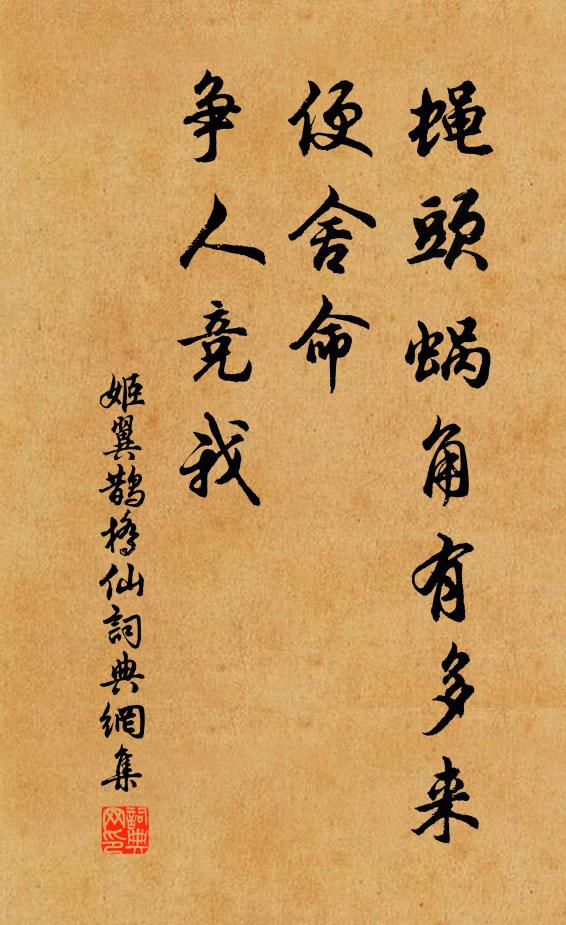 蝇頭蜗角有多来
便舍命
争人竞我
姬翼鹊橋仙詞典網集
詞典网印